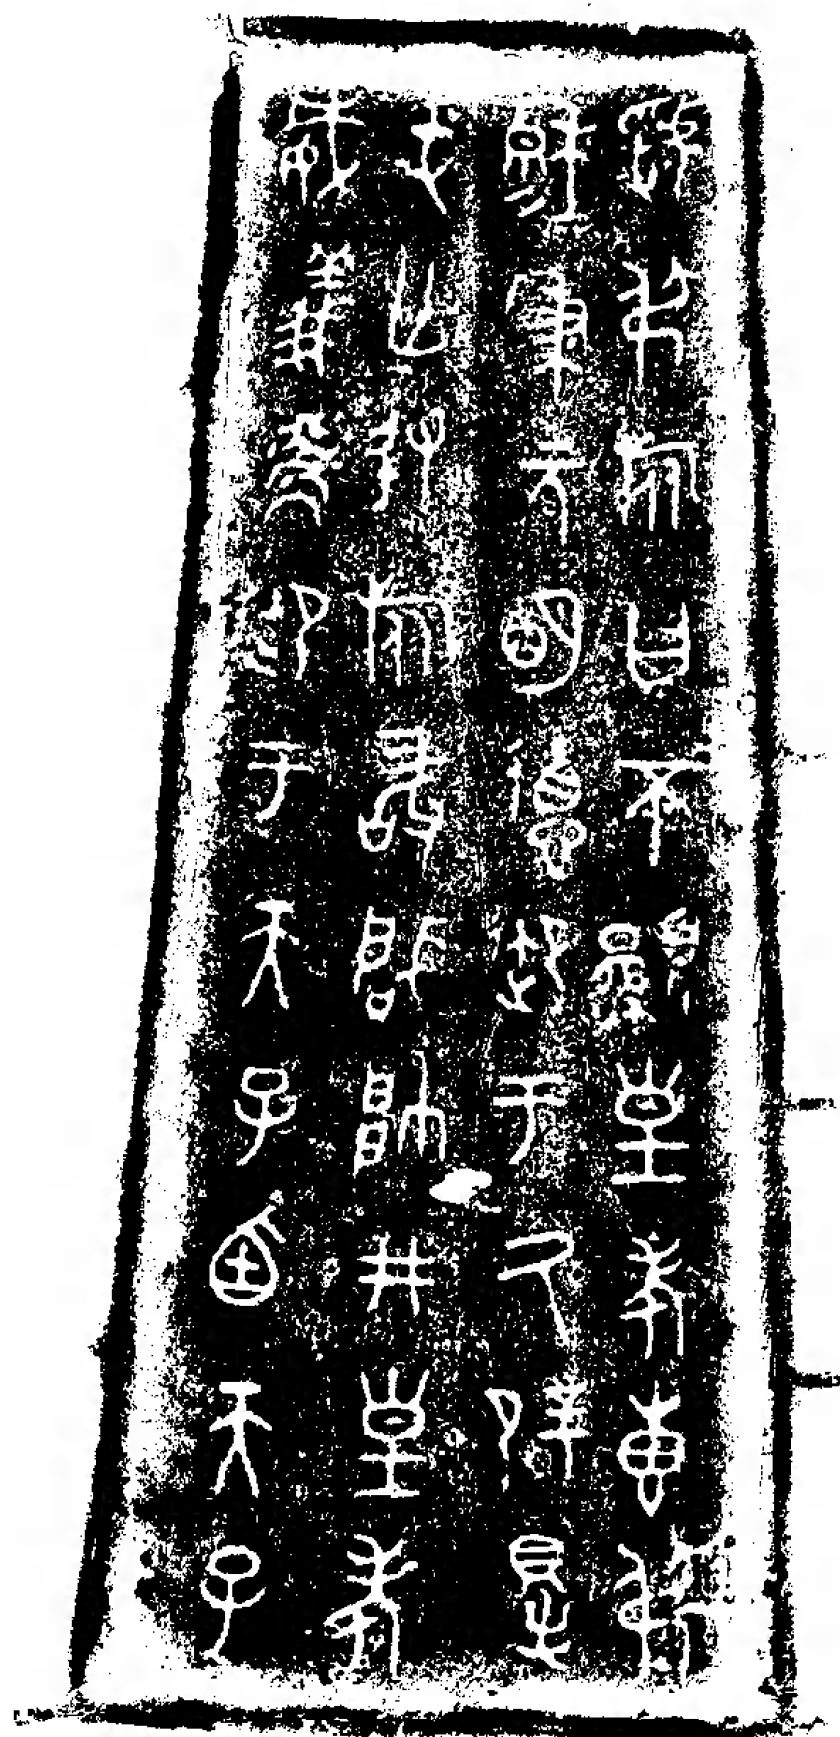 虢叔旅曰不顯皇考叀叔
穆＝秉元明德御于氒辟得
屯亡敃旅敢肈帥井皇考
威義御于天子迺天子